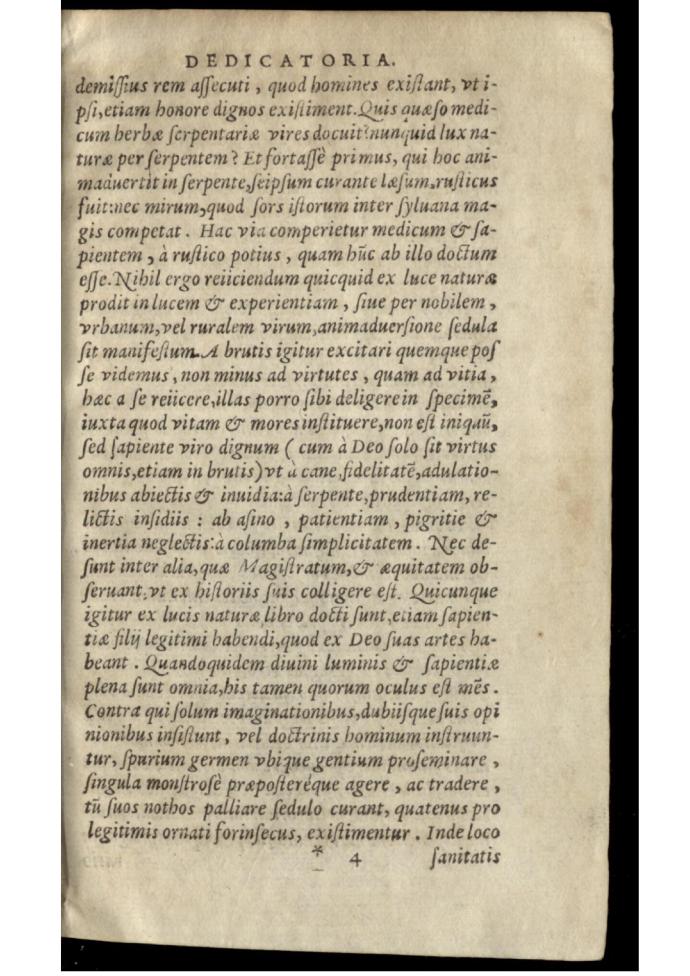 DEDICATORIA.
demiſſius rem aſſecuti, quod homines exiſtant, vt i-
pſi,etiam honore dignos exiſtiment.Quis quæſo medi-
cum herbæ ſerpentariæ vires docuit?nunquid lux na-
turæ per ſerpentem? Et fortaſſè primus, qui hoc ani-
maduertit in ſerpente,ſeipſum curante læſum,ruſticus
fuit:nec mirum,quod ſors iſtorum inter ſyluana ma-
gis competat. Hac via comperietur medicum & ſa-
pientem, à ruſtico potius, quam hūc ab illo doctum
eſſe.Nihil ergo reiiciendum quicquid ex luce naturæ
prodit in lucem & experientiam, ſiue per nobilem,
vrbanum,vel ruralem virum,animaduerſione ſedula
ſit manifeſtum. A brutis igitur excitari quemque poſ
ſe videmus, non minus ad virtutes, quam ad vitia,
hæc a ſe reiicere,illas porro ſibi deligere in ſpecimē,
iuxta quod vitam & mores inſtituere,non eſt iniquū,
ſed ſapiente viro dignum (cum à Deo ſolo ſit virtus
omnis,etiam in brutis)vt à cane,fidelitatē,adulatio-
nibus abiectis & inuidia:à ſerpente,prudentiam, re-
lictis inſidiis : ab aſino, patientiam, pigritie &
inertia neglectis:à columba ſimplicitatem. Nec de-
ſunt inter alia,quæ Magiſtratum,& æquitatem ob-
ſeruant,vt ex hiſtoriis ſuis colligere eſt. Quicunque
igitur ex lucis naturæ libro docti ſunt,etiam ſapien-
tiæ filij legitimi habendi,quod ex Deo ſuas artes ha-
beant. Quandoquidem diuini luminis & ſapientiæ
plena ſunt omnia,his tamen quorum oculus eſt mēs.
Contra qui ſolum imaginationibus,dubiiſque ſuis opi
nionibus inſiſtunt, vel doctrinis hominum inſtruun-
tur, ſpurium germen vbique gentium proſeminare,
ſingula monſtroſè præpoſteréque agere, ac tradere,
tū ſuos nothos palliare ſedulo curant, quatenus pro
legitimis ornati forinſecus, exiſtimentur. Inde loco
* 4 ſanitatis